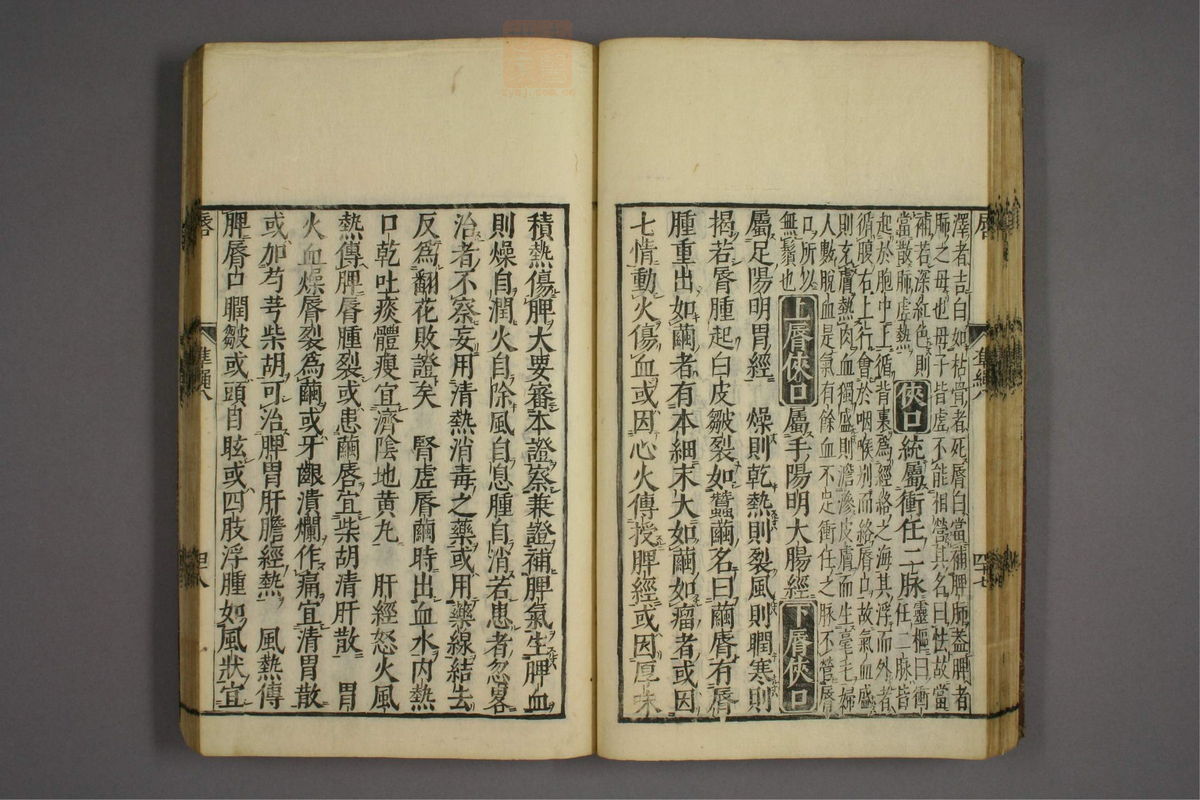 澤者吉白如枯骨者死脣白當補脾肺蓋脾者
肺之母也母子皆虛不能相營其名曰怯故當
補若深紅色則
當散肺虛熱
俠口
統屬衝任二脉
靈樞曰衝
任二脉皆
起於胞中上循背裏爲經絡之海其浮而外者
循腹右上行會於咽喉別而絡脣口故氣血盛
則充膚熱肉血獨盛則澹滲皮膚而生毫毛婦
人數脫血是氣有餘血不足衝任之脉不營脣
口所以
無鬚也
上脣俠口
屬手陽明大腸經
下脣俠口
屬足陽明胃經 燥則乾熱則裂風則瞤寒則
揭若脣腫起白皮皺裂如蠶繭名曰繭脣有脣
腫重出如繭者有本細末大如繭如瘤者或因
七情動火傷血或因心火傳授脾經或因厚味
積熱傷脾大要審本證察兼證補脾氣生脾血
則燥自潤火自除風自息腫自消若患者忽畧
治者不察妄用清熱消毒之藥或用藥線結去
反爲翻花敗證矣 腎虛脣繭時出血水內熱
口乾吐痰體瘦宜濟陰地黄丸 肝經怒火風
熱傳脾脣腫裂或患繭唇宜柴胡清肝散 胃
火血燥唇裂爲繭或牙齦潰爛作痛宜清胃散
或加芍芎柴胡可治脾胃肝膽經熱 風熱傳
脾脣口瞤皺或頭目眩或四肢浮腫如風狀宜
脣
四七
脣
四八